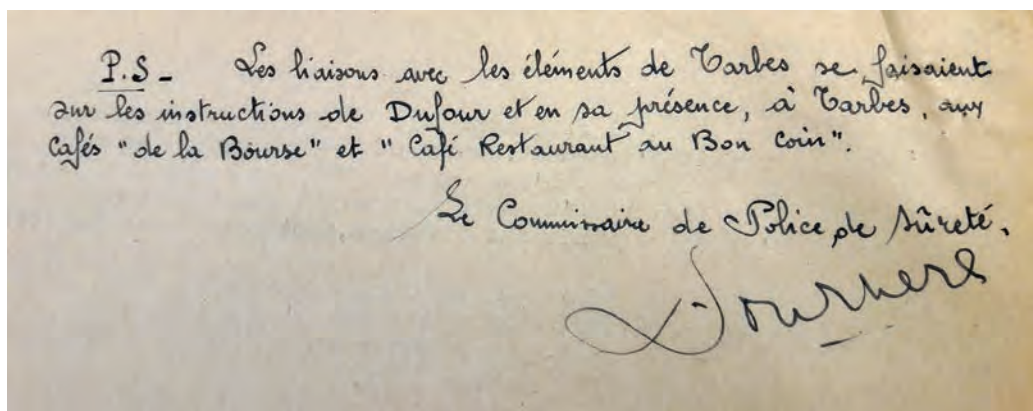 P.S - Les liaisons avec les éléments de Tarbes se faisaient
sur les instructions de Dufour et en sa présence, à Tarbes, aux
Cafés "de la Bourse" et "Café Restaurant au Bon Coin".
Le Commissaire de Police de Sûreté,